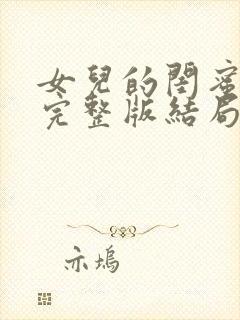 女兒的閨蜜
完整版結局
亦塢